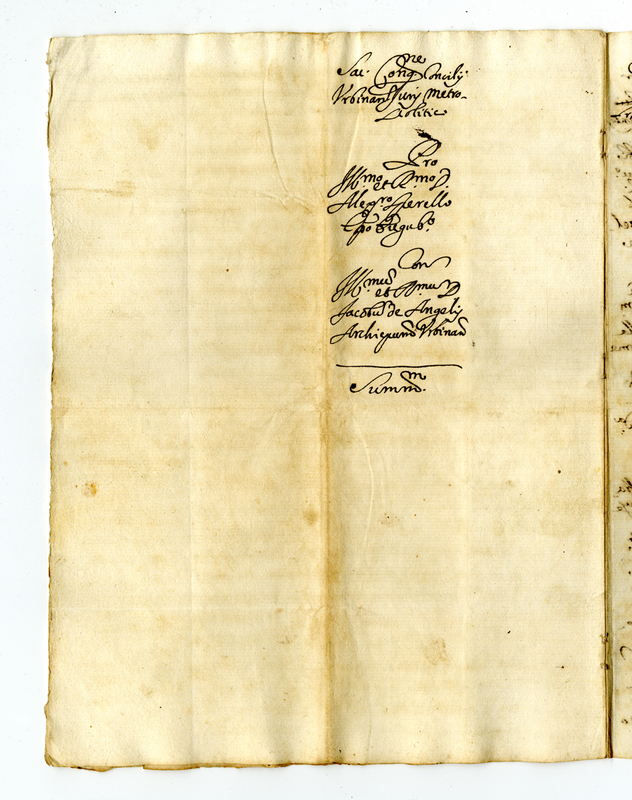 Sac. Cong.ne Concilij
Urbinan Jurij Metro-
politic
Pro
Ill.mo et R.mo D.
Alex.ro Sperello
Epo Eugub.o
Con
Ill.mum et R.mum D
Jacobum de Angelij
Archiepum Urbinan
Summ.m